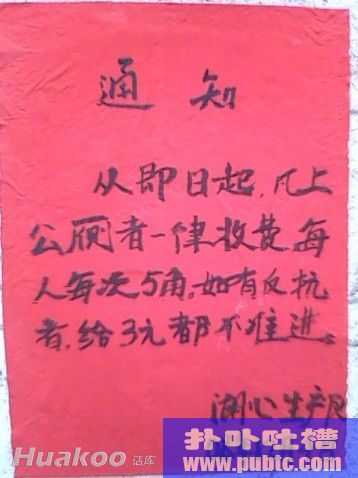 通知
从即日起,凡上
公厕者一律收费,每
人每次5角。如有反抗
者,给3元都不准进。
湖心生产队
Huakoo 话库
扑卟吐槽
www.pubtc.com